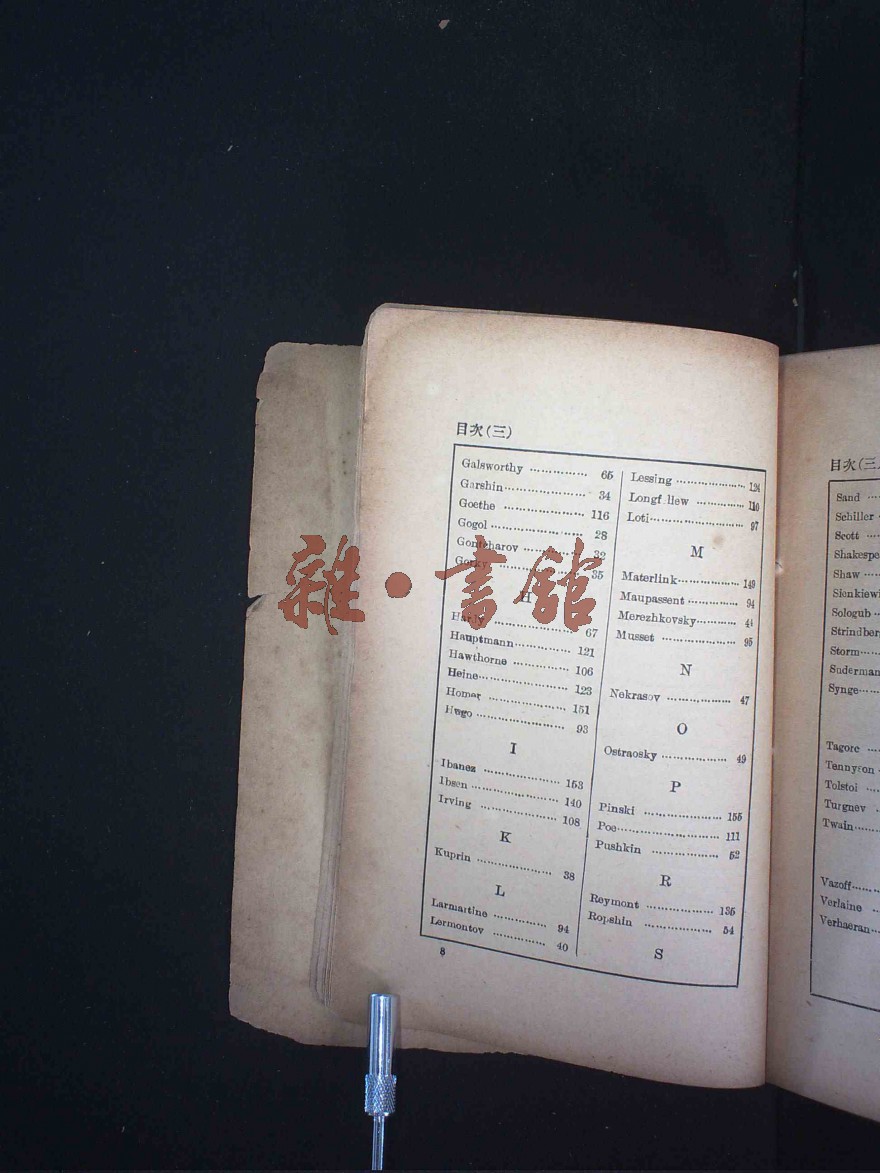 目次(三)
Galsworthy ............... 65
Garshin..................... 34
Goethe ..................... 116
Gogol ..................... 28
Gontcharov ............... 32
Gorky ..................... 35
H
Hardy ..................... 67
Hauptmann............... 121
Hawthorne ............... 106
Heine..................... 123
Homer ..................... 151
Hugo ..................... 93
I
Ibanez ..................... 153
Ibsen ..................... 140
Irving ..................... 108
K
Kuprin ..................... 38
L
Larmartine ............... 94
Lermontov ............... 40
8
Lessing ..................... 124
Longf llew ............... 110
Loti........................ 97
M
Materlink.................. 149
Maupassent ............... 94
Merezhkovsky............ 44
Musset ..................... 95
N
Nekrasov .................. 47
O
Ostraosky .................. 49
P
Pinski ..................... 155
Poe........................ 111
Pushkin .................. 52
R
Reymont .................. 135
Ropshin .................. 54
S
目次(三
Sand
Schiller
Scott
Shaw
Sologub
Storm
Synge
Tagore
Tennyson
Tolstoi
Turgnev
Twain
Vazoff
Verlaine
Verhaeran
雜·書館